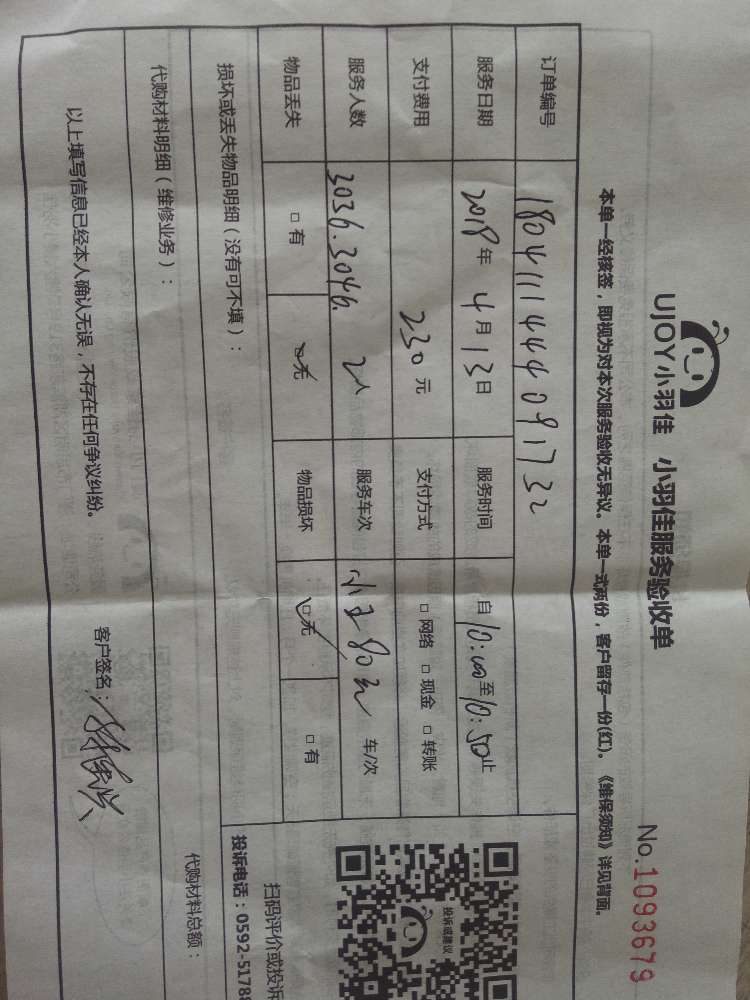 UJOY小羽佳 小羽佳服务验收单
No.1093679
本单一经核签，即视为对本次服务验收无异议。本单一式两份，客户留存一份(红)。《维保须知》详见背面。
订单编号 180411144409173
服务日期 2018年 4月 13日 服务时间 自10:00至10:50止
支付费用 230元 支付方式 □ 网络 □ 现金 □ 转账
服务人数 3036.3046. 2人 服务车次 车/次
物品丢失 □ 有 □ 无 物品损坏 □ 无 □ 有
损坏或丢失物品明细（没有可不填）：
代购材料明细（维修业务）：
代购材料总额：
以上填写信息已经本人确认无误，不存在任何争议纠纷。
客户签名：
投诉或建议
扫码评价或投诉
投诉电话：0592-5178